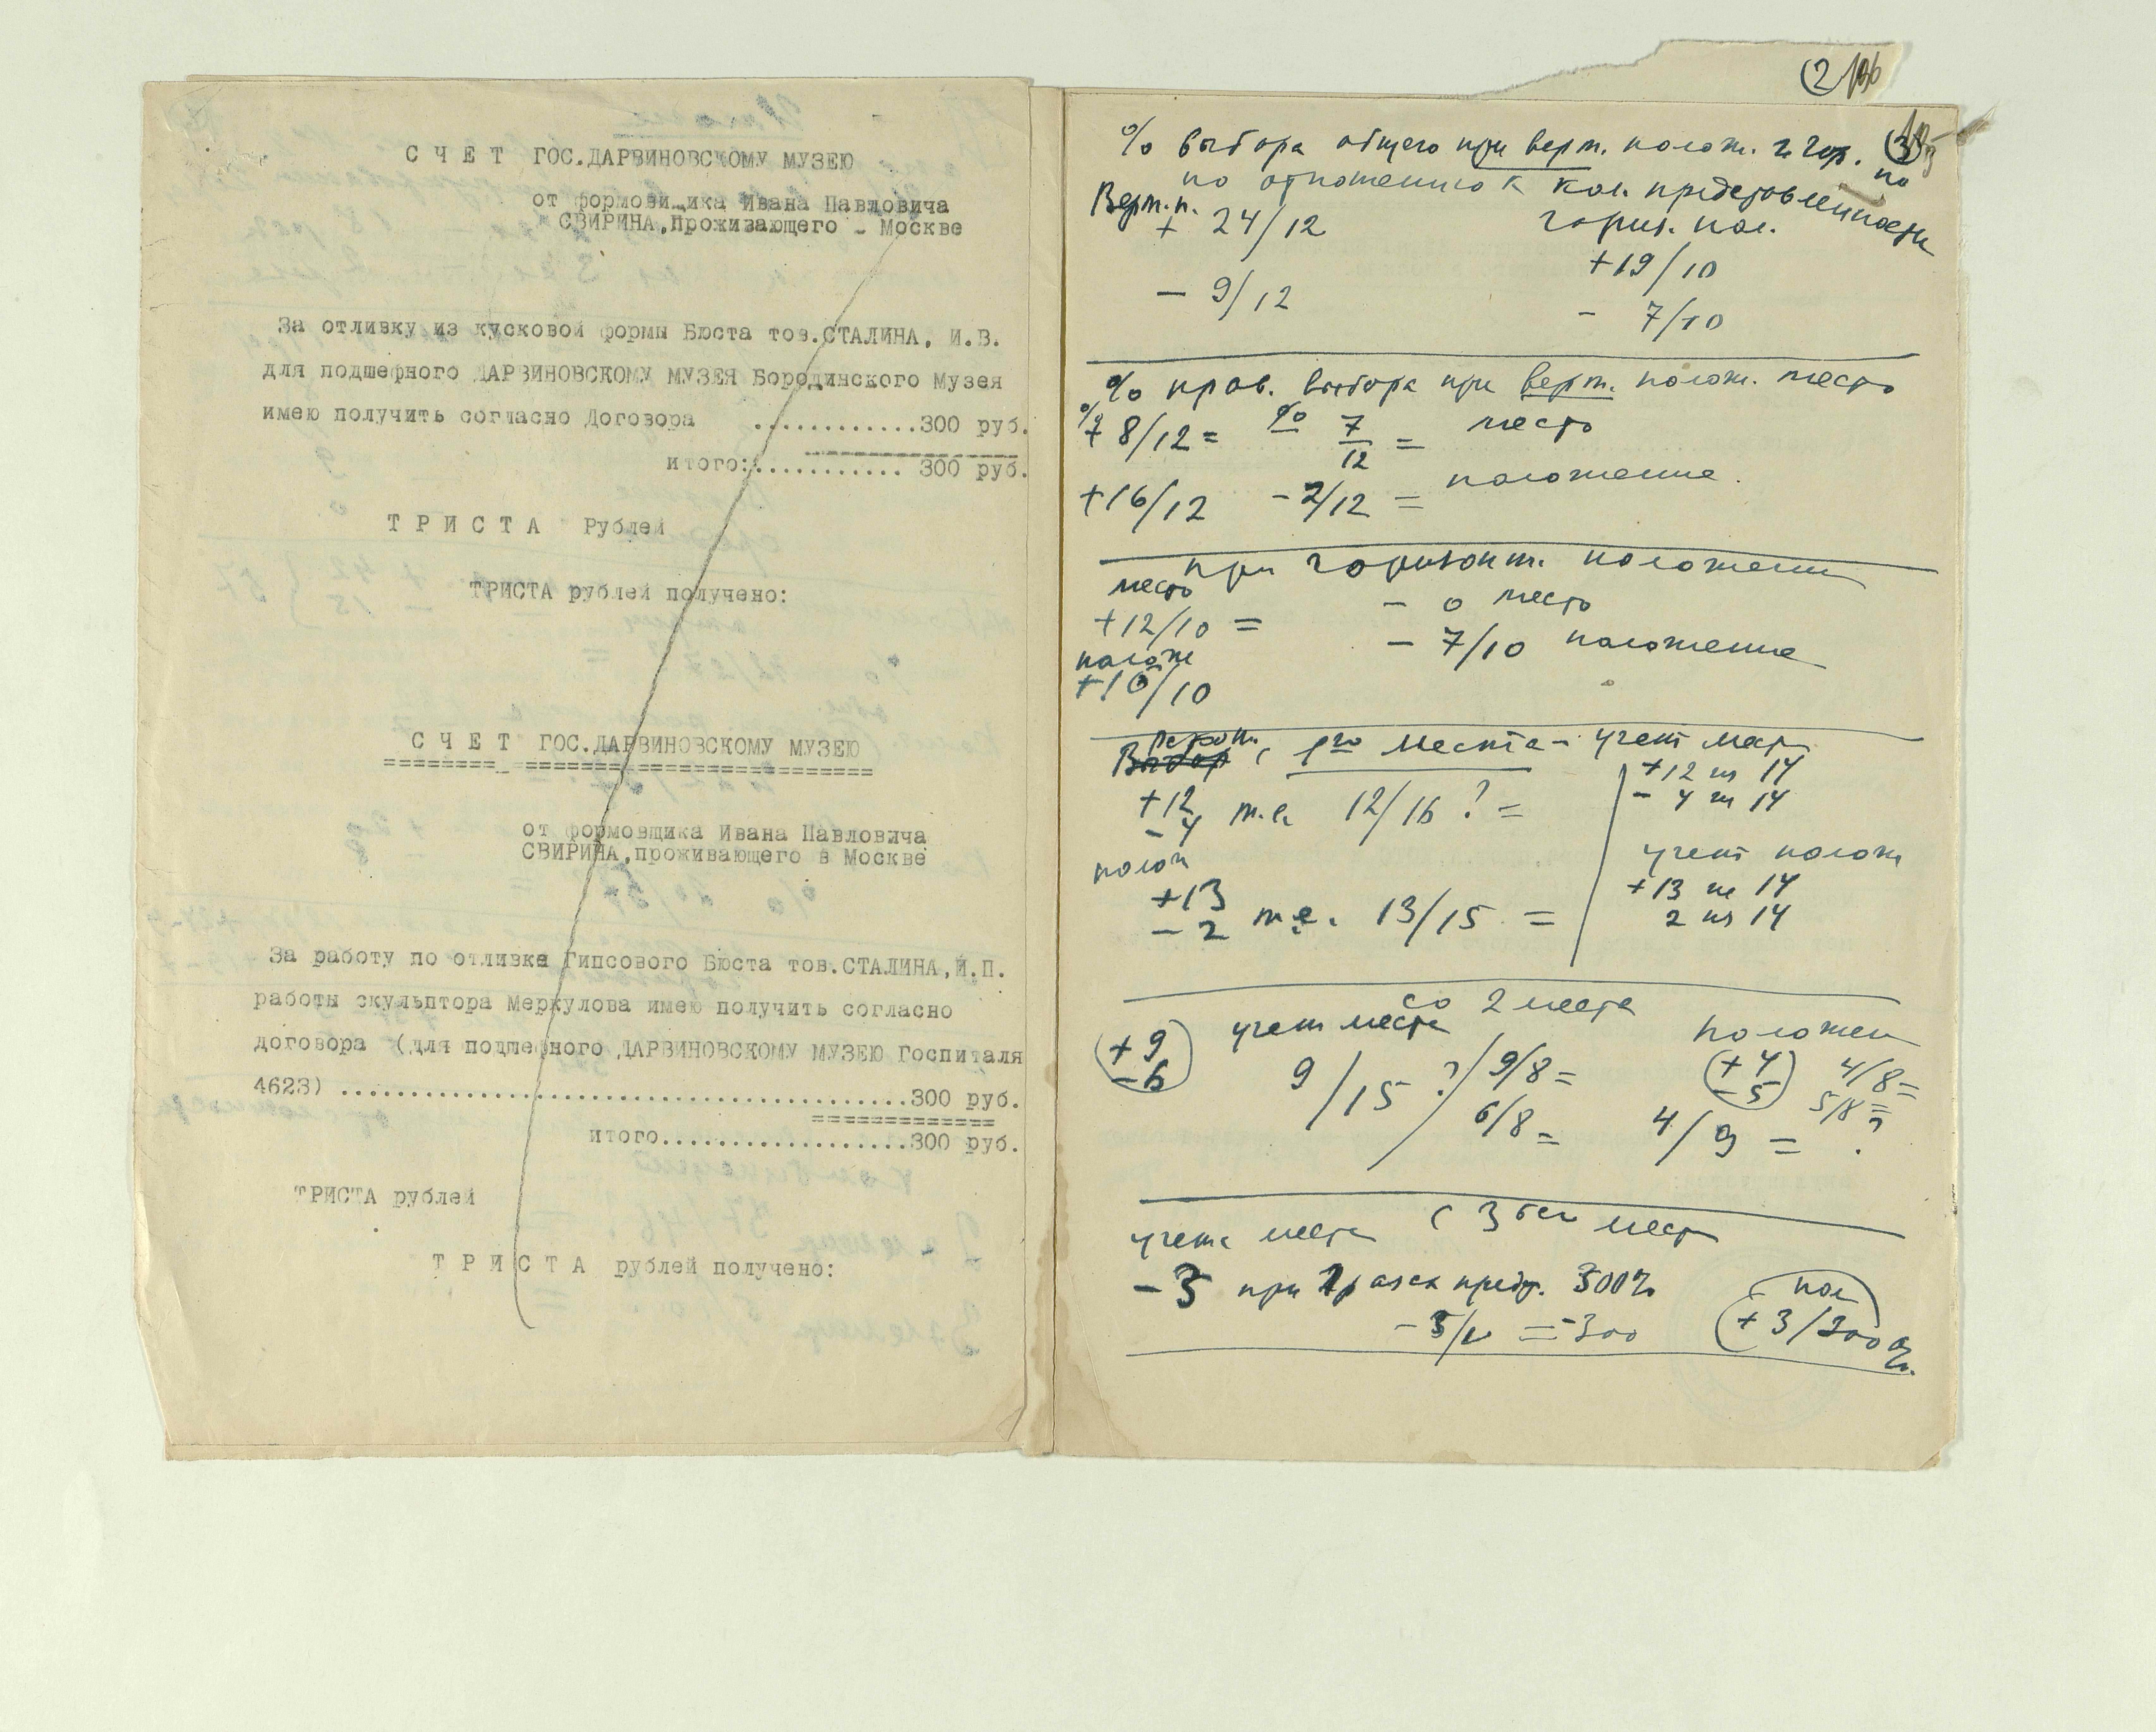 С Ч Е Т ГОС.ДАРВИНОВСКОМУ МУЗЕЮ
от формовищика Ивана Павловича
СВИРИНА,проживающего - Москве
За отливку из кусковой формы Бюста тов.СТАЛИНА, И.В.
для подшефного ДАРВИНОВСКОМУ МУЗЕЯ Бородинского Музея
имею получить согласно Договора ............300 руб.
итого:........... 300 руб.
Т Р И С Т А Рублей
ТРИСТА рублей получено:
С Ч Е Т ГОС.ДАРВИНОВСКОМУ МУЗЕЮ
от формовщика Ивана Павловича
СВИРИНА,проживающего в Москве
За работу по отливке Гипсового Бюста тов.СТАЛИНА,И.П.
работы скульптора Меркулова имею получить согласно
договора (для подшефного ДАРВИНОВСКОМУ МУЗЕЮ Госпиталя
4623) .......................................300 руб.
итого...................300 руб.
ТРИСТА рублей
Т Р И С Т А рублей получено:
2
% выбора общего при верт. полож. и гор. по
по отношению к кол. представленности
Верт. п. гориз. пол.
+ 24/12 +19/10
- 9/12 - 7/10
% прав. выбора при верт. полож. место
+ 8/12 = % 7/12 = место
+16/12 - 2/12 = положение
при горизонт. положении
место - 0 место
+12/10 = - 7/10 положение
полож
+10/10
Выбор с 1го места - учет мест
+12 из 14
- 4 из 14
+12
- 4 т.е. 12/16 ? =
полож учет полож
+13 +13 из 14
- 2 т.е. 13/15 = 2 из 14
со 2 места
учет места положен
+ 9
- 6
9/15 ? 9/8 =
6/8 =
+ 4
- 5
4/8 =
5/8 =
4/9 = ?
с 3его места
учета места
- 3 при 1 разах предъ. 300%
= -300
пол
+ 3/300